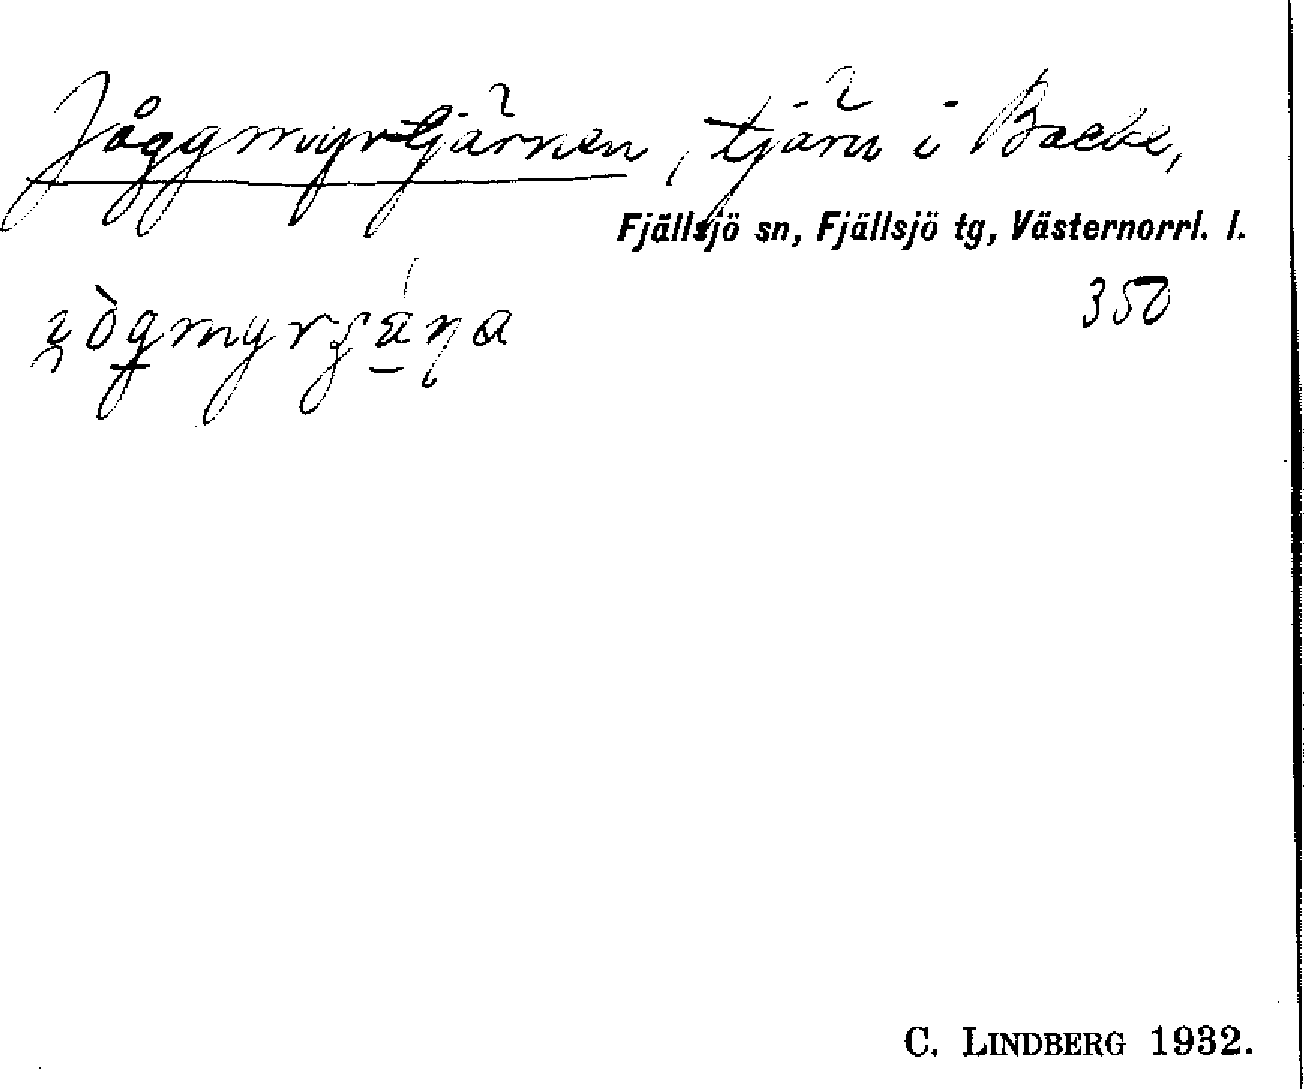 Jåggmyrtjärnen, tjärn i Backe,
Fjällsjö sn, Fjällsjö tg, Västernorrl. l.
350
C. LINDBERG 1932.